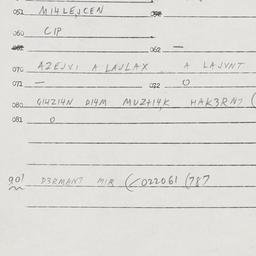 051 MI4LEJCEN
060 CIP
062 —
070 AZEJVI A LAJLAX A LAJVNT
071 — 072 O
080 GI4ZI4N DI4M MUZ+I4K HAK3RN7 (
081 O
901 D3RMAN7 MIR (-022061 (787